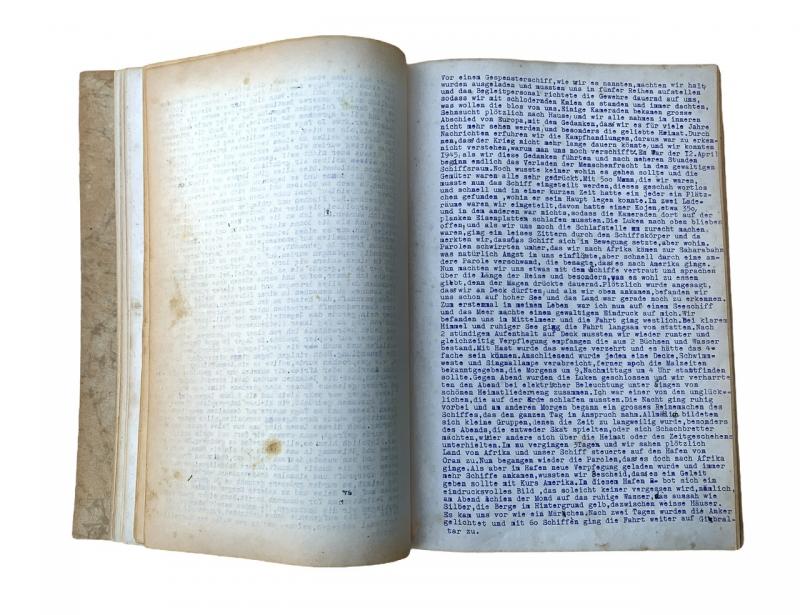 Vor einem Gespensterschiff,wie wir es nannten,machten wir halt
wurden ausgeladen und mussten uns in fünfer Reihen aufstellen
und das Begleitpersonal richtete die Gewehre dauernd auf uns,
sodass wir mit schlodernden Knien da standen und immer dachten,
was wollen die blos von uns.Einige Kameraden bekamen grosse
Sehnsucht plötzlich nach Hause,und wir alle nahmen im inneren
Abschied von Europa,mit dem Gedanken,dass wir es für viele Jahre
nicht mehr sehen werden,und besonders die geliebte Heimat.Durch
Nachrichten erfuhren wir die Kampfhandlungen,daraus war zu erken-
nen,dass der Krieg nicht mehr lange dauern könnte,und wir konnten
nicht verstehen,warum man uns noch verschifft.Es war der 12.April
1945,als wir diese Gedanken führten und nach meheren Stunden
begann endlich das Verladen der Menschenfracht in den gewaltigen
Schiffsraum.Noch wusste keiner wohin es gehen sollte und die
Gemüter waren alle sehr gedrückt.Mit 500 Mann,die wir waren,
musste nun das Schiff eingeteilt werden,dieses geschah wortlos
und schnell und in einer kurzen Zeit hatte ein jeder ein Plätz-
chen gefunden ,wohin er sein Haupt legen konnte.In zwei Lade-
räume waren wir eingeteilt,davon hatte einer Kojen,etwa 350,
und in dem anderen war nichts,sodass die Kameraden dort auf der
blanken Eisenplatten schlafen mussten.Die Luken nach oben blieben
offen,und als wir uns noch die Schlafstelle zu zurecht machen
waren,ging ein leises Zittern durch den Schiffskörper und da
merkten wir,dass das Schiff sich in Bewegung setzte,aber wohin.
Parolen schwirrten umher,das wir nach Afrika kämen zur Saharabahn
was natürlich Angst in uns einflöste,aber schnell durch eine an-
dere Parole verschwand, die besagte,dass es nach Amerika ginge.
Nun machten wir uns etwas mit dem Schiffe vertraut und sprachen
über die Länge der Reise und besonders,was es wohl zu essen
giebt,denn der Magen drückte dauernd.Plötzlich wurde angesagt,
dass wir an Deck dürften,und als wir oben ankamen,befanden wir
uns schon auf hoher See und das Land war gerade noch zu erkennen.
Zum erstemal in meinem Leben war ich nun auf einem Seeschiff
und das Meer machte einen gewaltigen Eindruck auf mich.Wir
befanden uns im Mittelmeer und die Fahrt ging westlich.Bei klarem
Himmel und ruhiger See ging die Fahrt langsam von statten.Nach
2 stündigem Aufenthalt auf Deck mussten wir wieder runter und
gleichzeitig Verpflegung empfangen die aus 2 Büchsen und Wasser
bestand.Mit Hast wurde das wenige verzehrt und es hätte das 4=
fache sein können.Anschliesend wurde jedem eine Decke,Schwimm-
weste und Singnallampe verabreicht,ferner noch die Malzeiten
bekanntgegeben,die Morgens um 9,Nachmittags um 4 Uhr stattfinden
sollte.Gegen Abend wurden die Luken geschlossen und wir verharrte
ten den Abend bei elektrischer Beleuchtung unter singen von
schönen Heimatliedern zusammen.Ich war einer von den unglück-
lichen,die auf der Erde schlafen mussten.Die Nacht ging ruhig
vorbei und am anderen Morgen begann ein grosses Reinemachen des
Schiffes,das den ganzen Tag in Anspruch nahm.Allmälich bildeten
sich kleine Gruppen,denen die Zeit zu langweilig wurde,besonders
des Abends,die entweder Skat spielten,oder sich Schachbretter
machten,wider andere sich über die Heimat oder des Zeitgeschehens
unterhielten.Im nu vergingen 3Tagen und wir sahen plötzlich
Land von Afrika und unser Schiff steuerte auf den Hafen von
Oran zu.Nun begannen wieder die Parolen,dass es doch nach Afrika
ginge.Als aber im Hafen neue Verpfegung geladen wurde und immer
mehr Schiffe ankamen,wussten wir Bescheid,dass es ein Geleit
geben sollte mit Kurs Amerika.In diesem Hafen bot sich ein
eindrucksvolles Bild ,das soleicht keiner vergessen wird,nämlich,
am Abend schien der Mond auf das ruhige Wasser,das aussah wie
Silber,die Berge im Hintergrund gelb,dazwischen weisse Häuser.
Es kam uns vor wie ein Märchen.Nach zwei Tagen wurden die Anker
gelichtet und mit 60 Schiffen ging die Fahrt weiter auf Gibral-
tar zu.